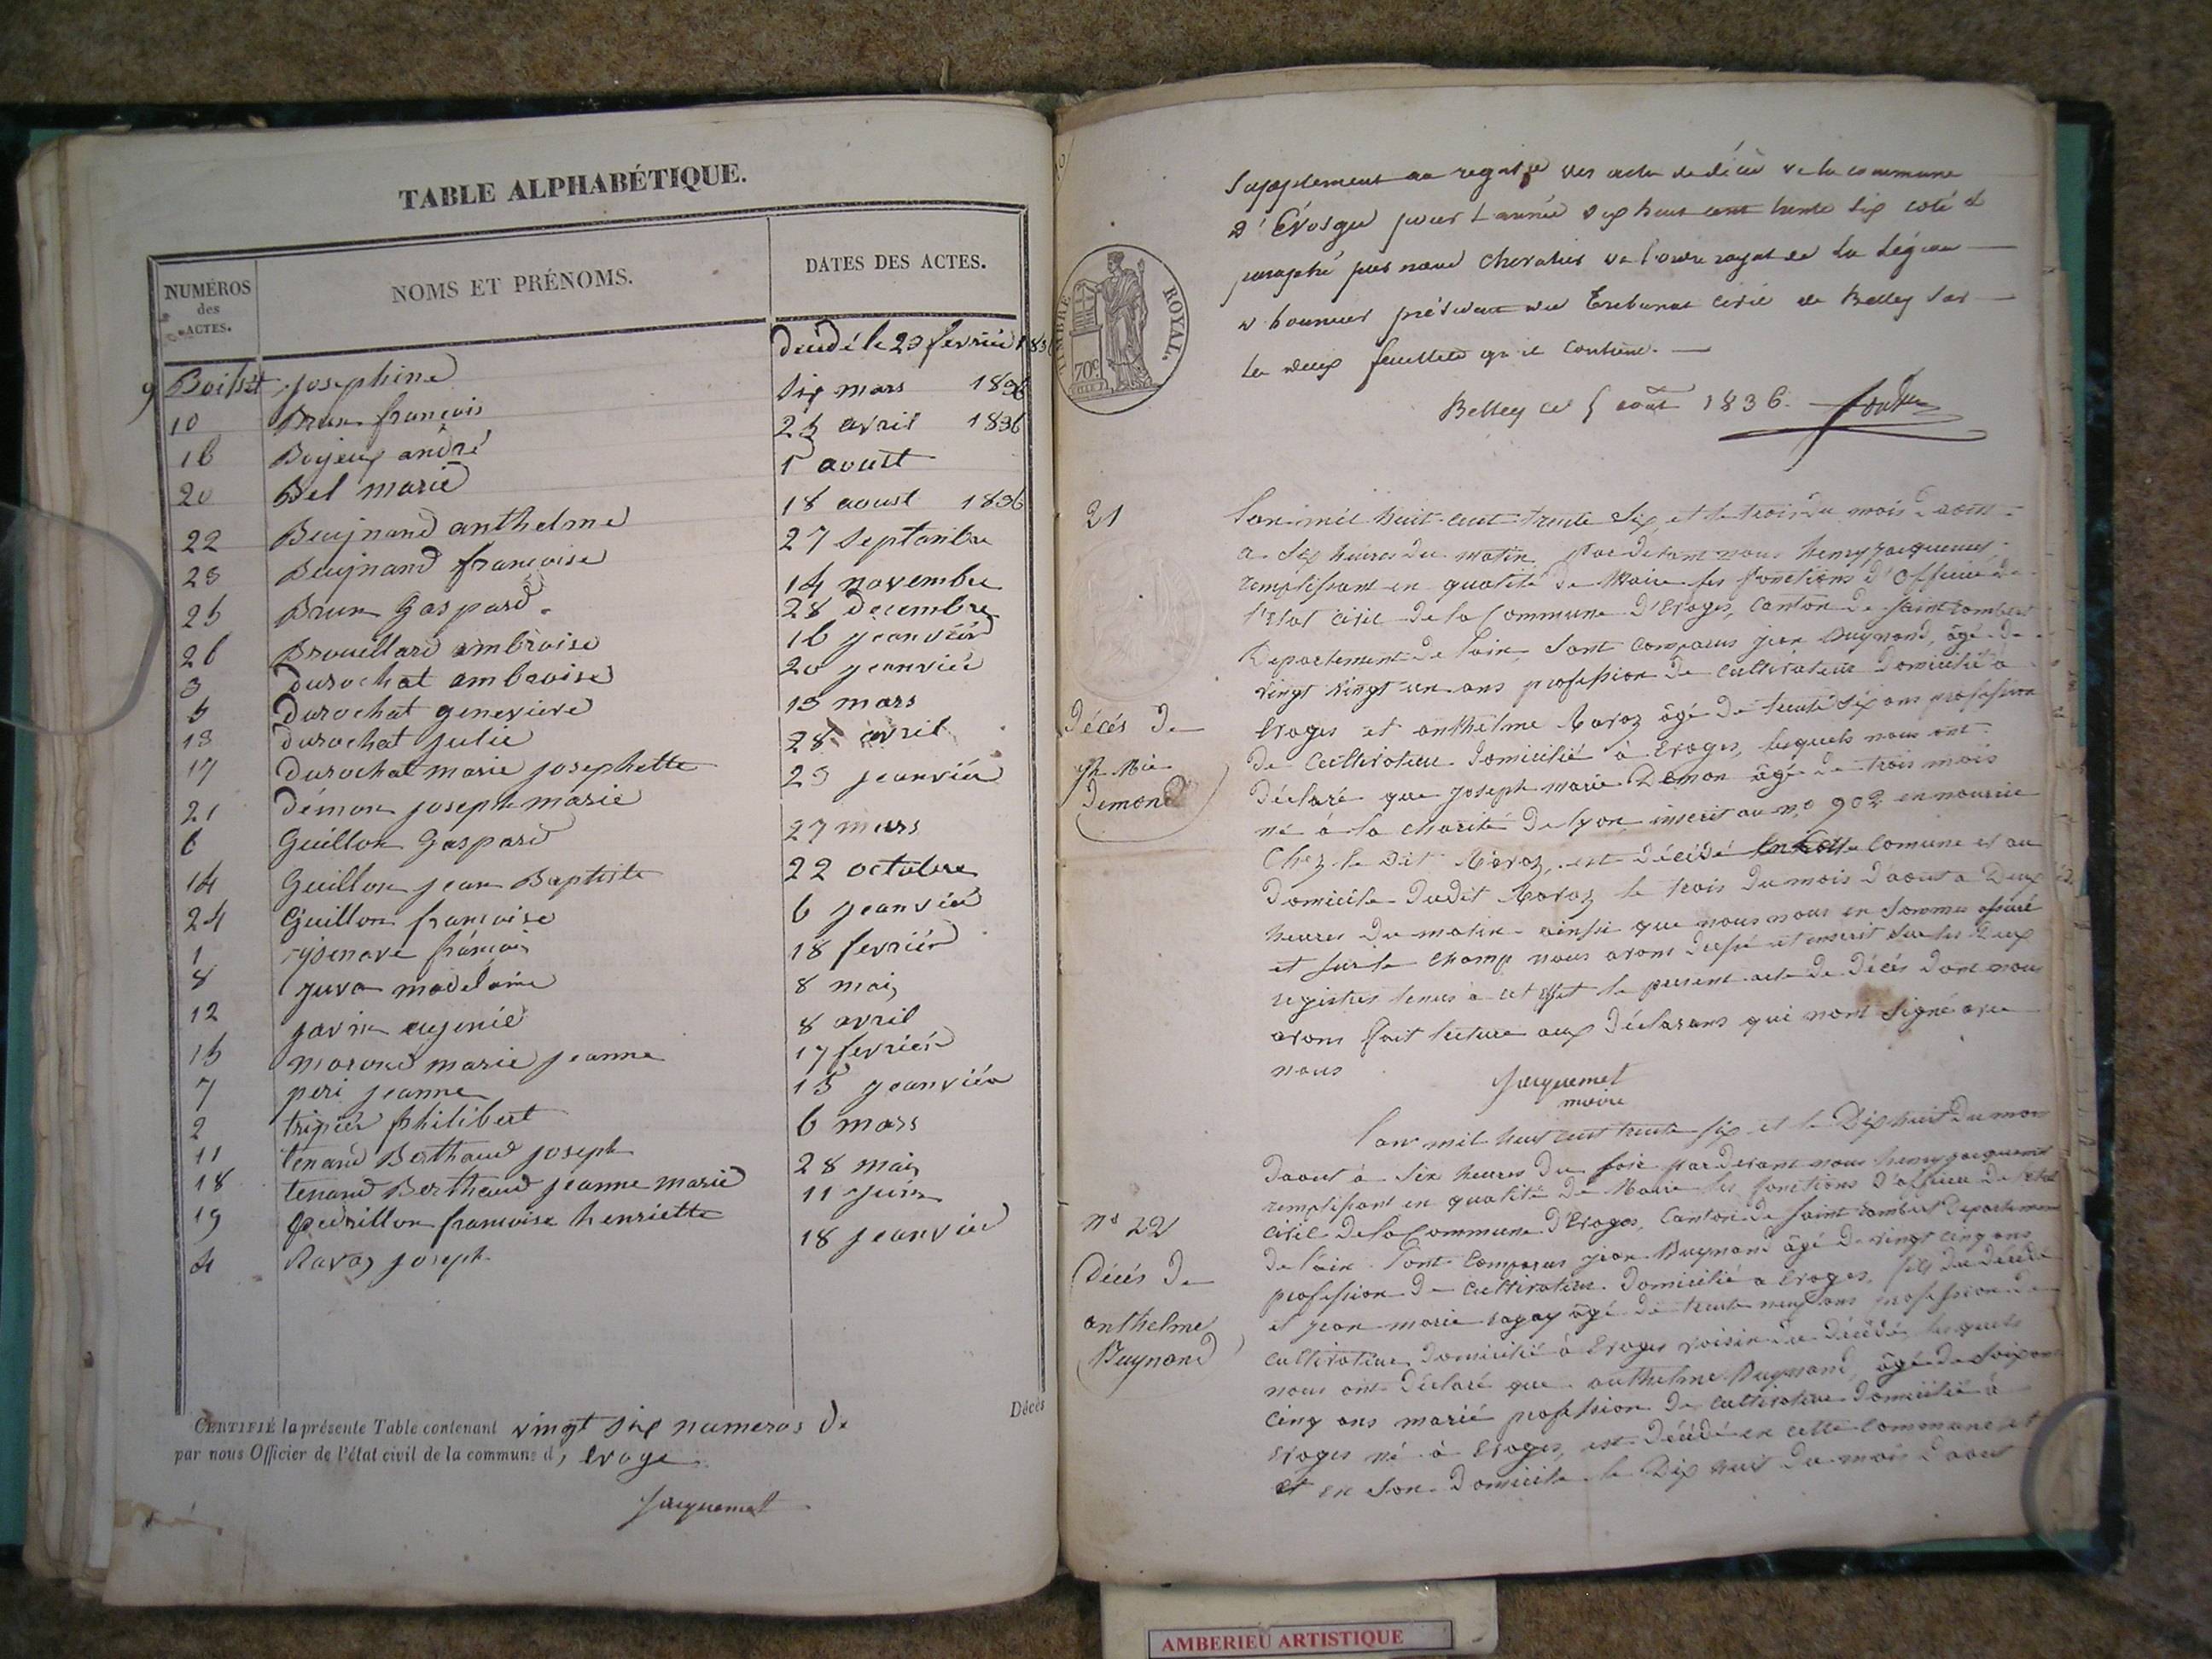 TABLE ALPHABÉTIQUE.
NUMÉROS des ACTES.
NOMS ET PRÉNOMS.
DATES DES ACTES.
9 Josephine décédé le 29 fevrier 1836
10 Brun françois six mars 1836
16 andré avril 1836
20 Bel marie 1 aoust
22 Buynand anthelme 18 aoust 1836
23 Buynand françoise 27 septambre
25 Brun Gaspard 14 novembre
26 Brouillard ambroise 28 decembre
3 durochat ambroise 16 jeanvier
5 durochat genevieve 20 jeanvier
13 durochat julie 15 mars
17 durochat marie josephette 28 avril
21 démon joseph marie
6 Guillon Gaspard 23 jeanvier
14 Guillon jean Baptiste 27 mars
24 Guillon françoise 22 octobre
1 françois 6 jeanvier
8 juva madelaine 18 fevrier
12 javrin eugenie 8 mai
15 marie jeanne 8 avril
7 peri jeanne 17 fevrier
2 tripier philibert 15 jeanvier
11 tenand Berthaud joseph 6 mars
18 tenand Berthaud jeanne marie 28 mai
19 françoise henriette 11 juin
4 Ravaz joseph 18 jeanvier
Décès
CERTIFIÉ la présente Table contenant vingt six numeros de
par nous Officier de l'état civil de la commune d' evoge
Jacquemet
TIMBRE ROYAL.
70c
Supplement au registre des actes de décès de la commune
d'Evosges pour l'année dix huit cent trente six coté et
paraphé par nous chevalier de l'ordre royal de la Légion
d'honneur président du Tribunal civil de Belley sur
les deux feuillets qu'il contient.
Belley ce 5 août 1836.
21
Décès de
jh Mie
Demond
L'an mil huit cent trente six et le trois du mois d'aout
a six heures du matin par devant nous henry jacquemet
remplissant en qualité de Maire les fonctions d'officier de
l'etat civil de la Commune d'Evoges, Canton de saint rambert
Departement de l'ain, sont comparus jean Buynand, âgé de
vingt un ans profession de cultivateur domicilié a
Evoges et anthelme Ravaz âgé de trente six ans profession
de Cultivateur domicilié à Evoges, lesquels nous ont
déclaré que joseph marie Demon âgé de trois mois
né à la charité de lyon inscrit au no 902 en nourrice
Chez le dit Ravaz, est décédé comune et au
domicile dudit Ravaz le trois du mois d'aout a deux
heures du matin ainsi que nous nous en sommes assuré
et sur le champ nous avons dressé et inscrit sur les deux
registres tenus à cet effet le present acte de décès dont nous
avons fait lecture aux déclarans qui n'ont signé avec
nous
Jacquemet
maire
no 22
Décès de
anthelme
Buynand
L'an mil huit cent trente six et le dix huit du mois
d'aout à six heures du soir par devant nous henry jacquemet
remplissant en qualité de Maire les fonctions d'officier de l'etat
civil de la Commune d'Evoges, Canton de saint rambert Departement
de l'ain sont comparus jean Buynand âgé de vingt cinq ans
profession de cultivateur domicilié a Evoges, fils du décédé
et jean marie ravaz âgé de trente neuf ans profession de
cultivateur domicilié à Evoges voisin du décédé lesquels
nous ont déclaré que anthelme Buynand, âgé de soixante
cinq ans marié profession de cultivateur domicilié à
Evoges né à Evoges, est décédé en cette commune et
et en son domicile le dix huit du mois d'aout
AMBERIEU ARTISTIQUE